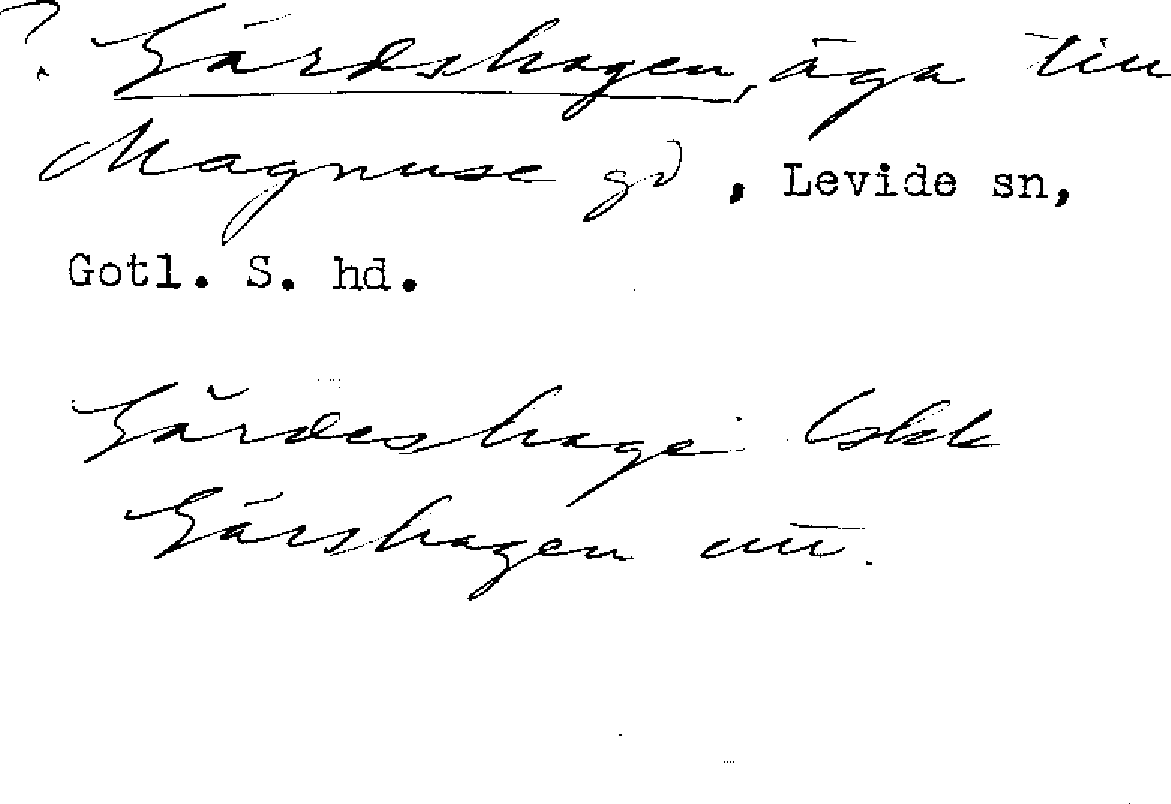 ? Gärdshagen, äga till
Magnuse gd, Levide sn,
Gotl. S. hd.
Gärdeshage Lskk
Gärshagen utt.